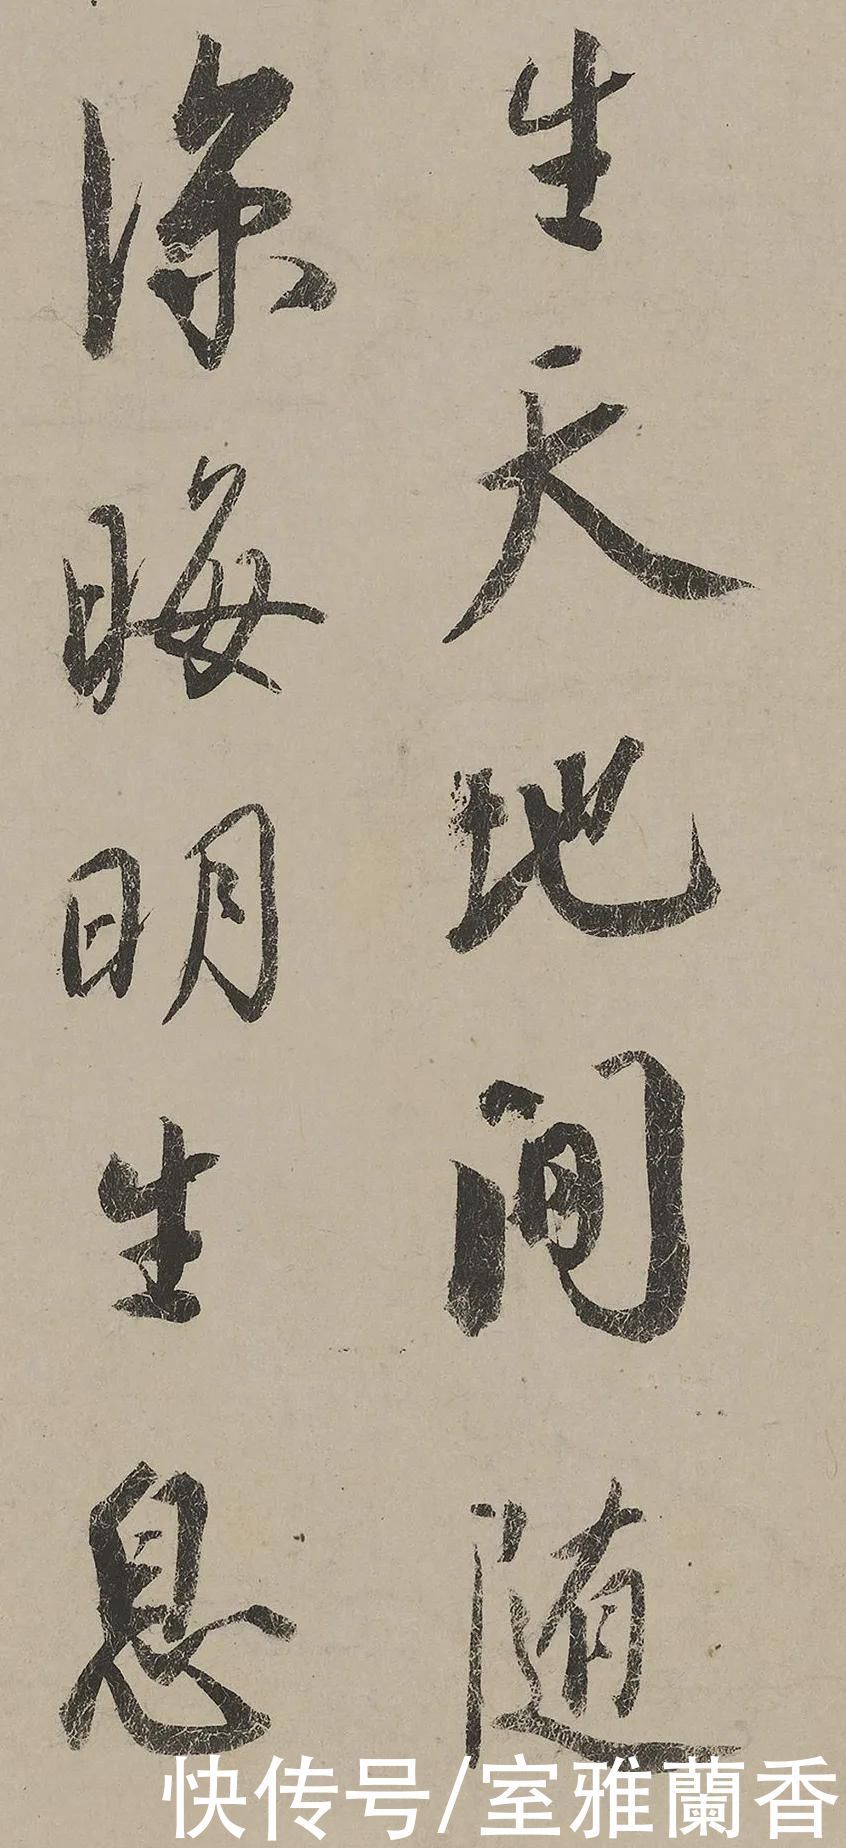 生天地間随
深晦明生息
快传号/室雅蘭香